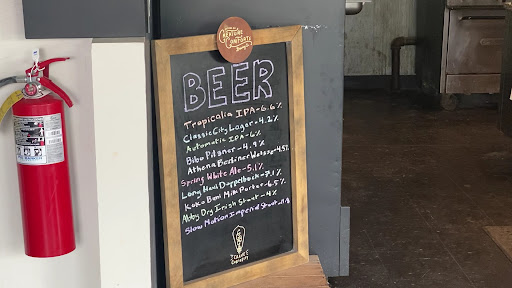 Creature
Comforts
BEER
Tropicalia IPA-6.6%
Classic City Lager-4.2%
Automatic IPA-6%
Bibo Pilsner-4.9%
Athena Berliner Weisse-4.5%
Spring White Ale-5.1%
Long Haul Doppelbock-7.1%
Koko Buni Milk Porter-6.5%
Abby Dry Irish Stout-4%
Slow Motion Imperial Stout